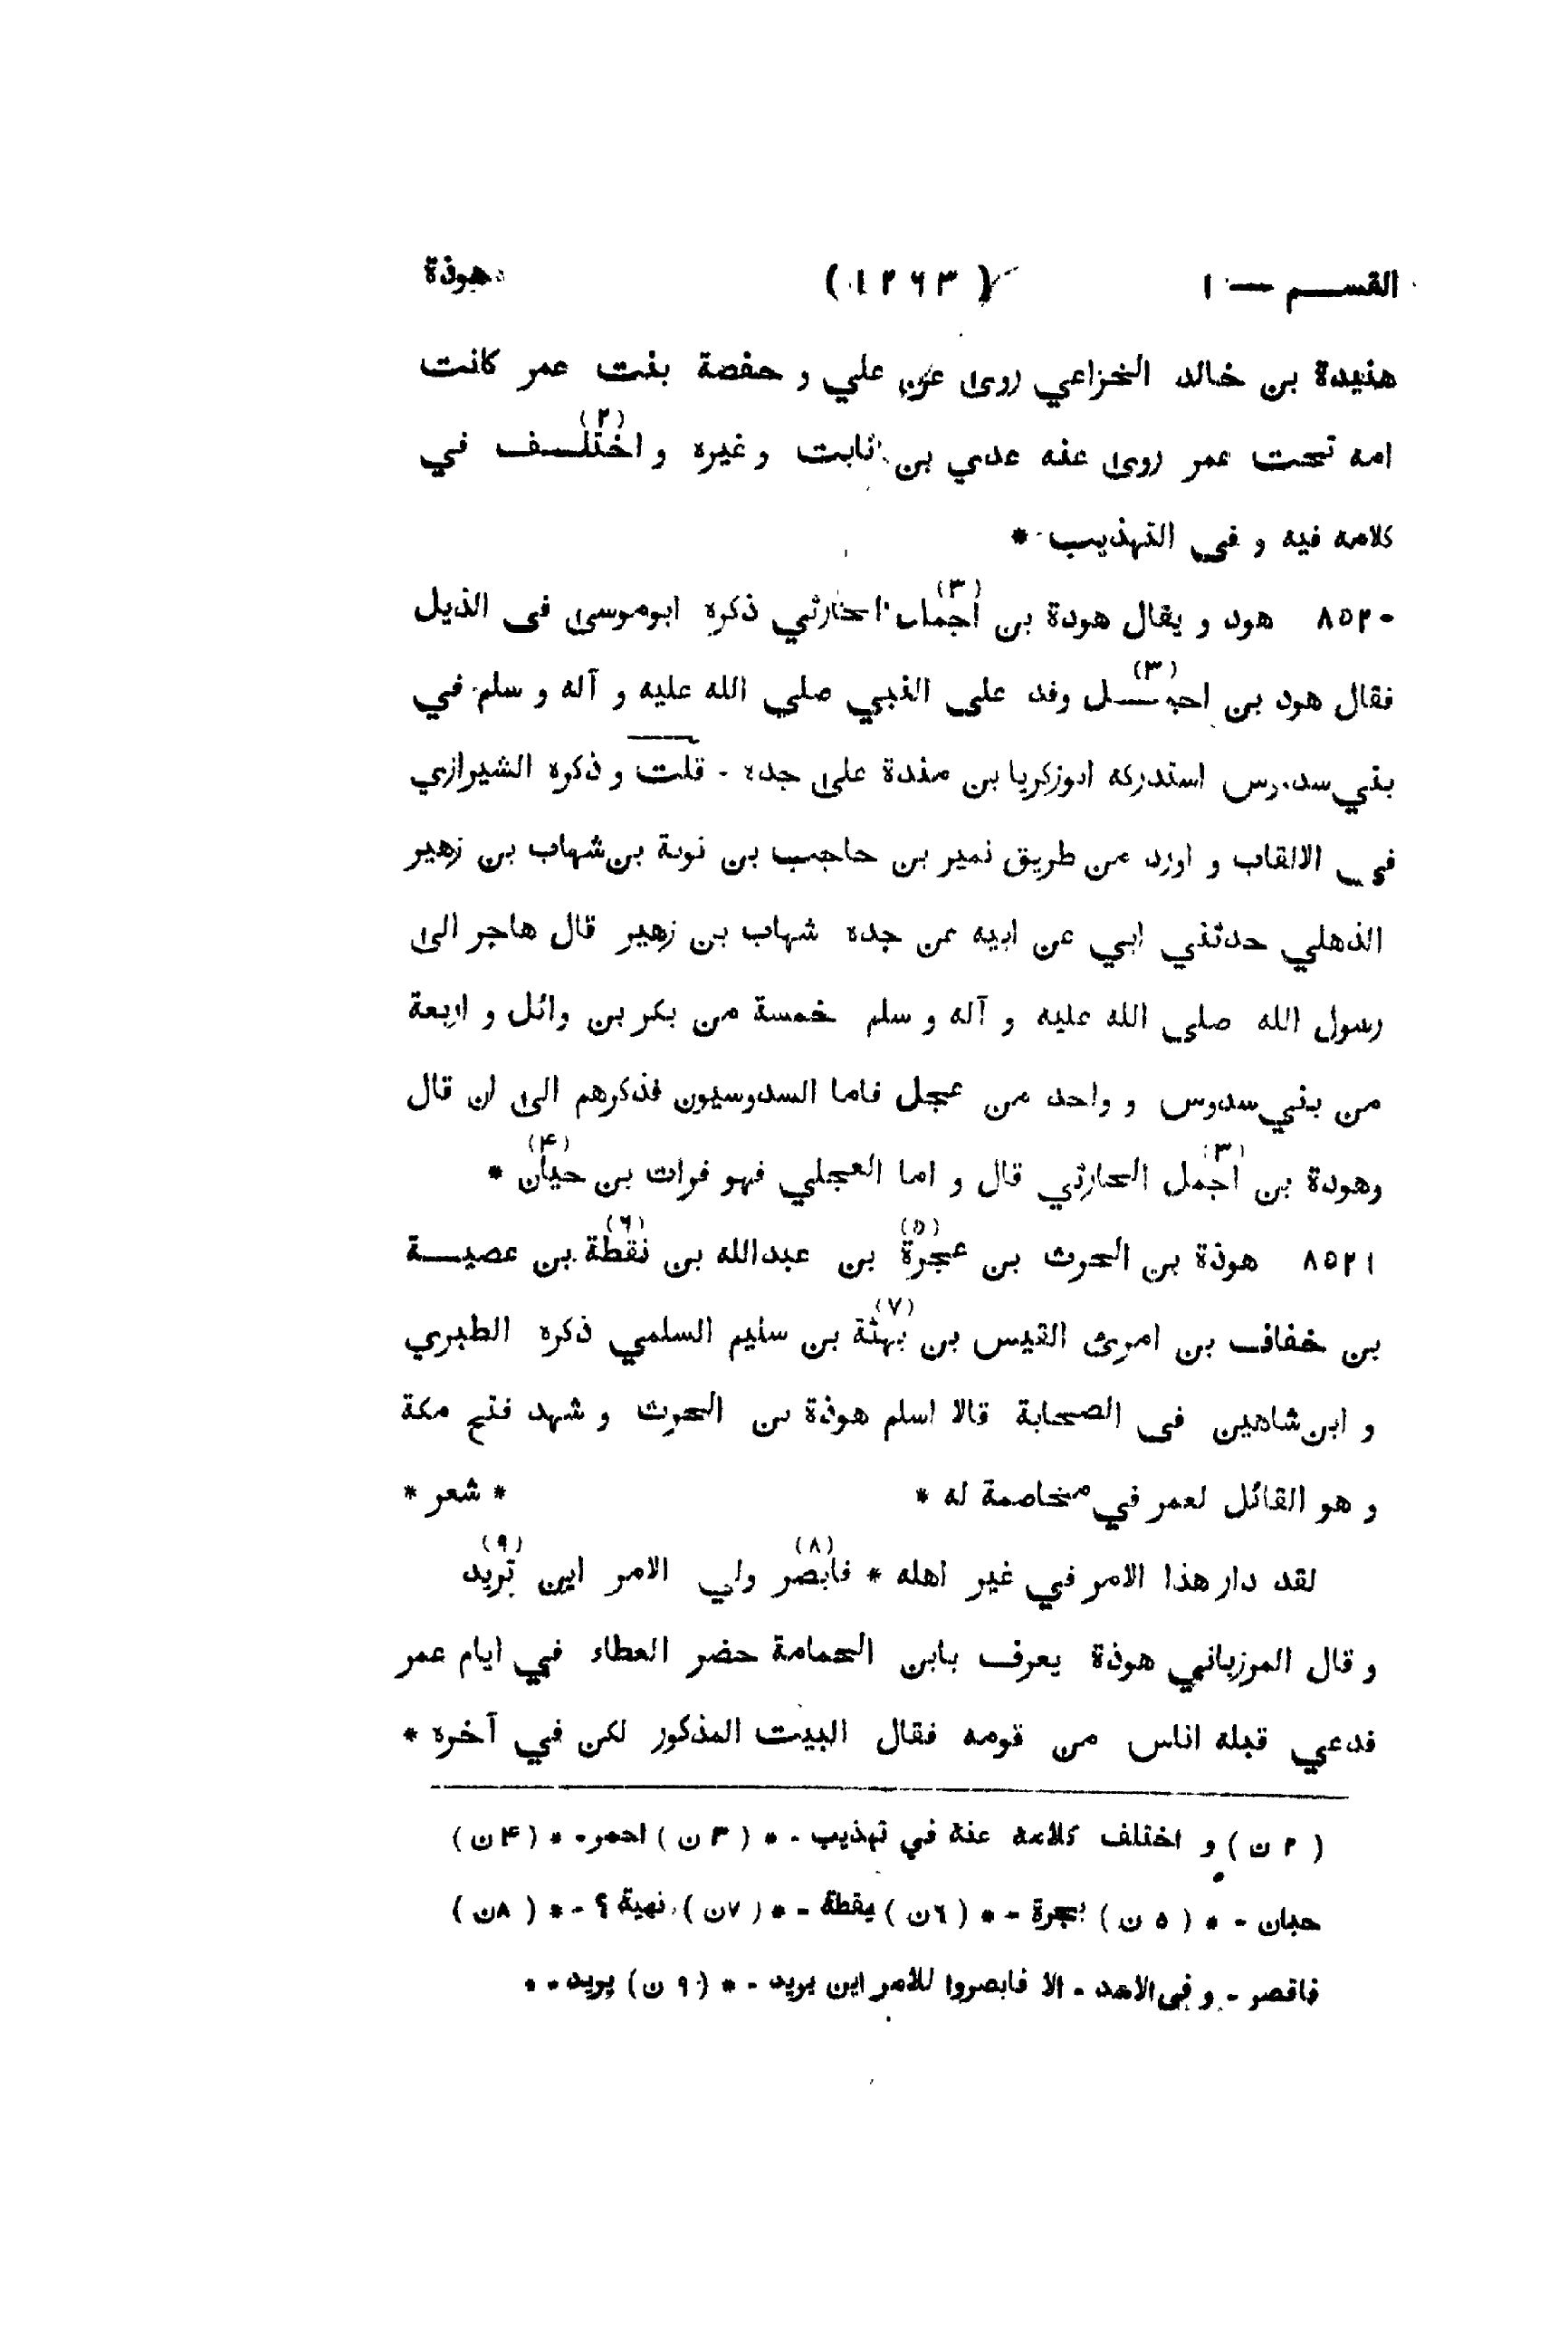 القسم — ١ ( ١٢٦٣ ) هوذة
هنيدة بن خالد الخزاعي روى عن علي و حفصة بنت عمر كانت
امه تحت عمر روى عنه عدي بن ثابت و غيره و اختلف (٢) في
كلامه فيه و فى التهذيب *
٨٥٢٠ هود و يقال هودة بن اجمل (٣) الحارثي ذكره ابوموسى فى الذيل
فقال هود بن احمل (٣) وفد على النبي صلى الله عليه و آله و سلم في
بني سدوس استدركه ابوزكريا بن مندة على جده - قلت و ذكره الشيرازي
فى الالقاب و اورد من طريق نمير بن حاجب بن نوبة بن شهاب بن زهير
الذهلي حدثني ابي عن ابيه عن جده شهاب بن زهير قال هاجر الى
رسول الله صلى الله عليه و آله و سلم خمسة من بكر بن وائل و اربعة
من بني سدوس و واحد من عجل فاما السدوسيون فذكرهم الى ان قال
وهودة بن اجمل (٣) الحارثي قال و اما العجلي فهو فرات بن حيان (۴) *
٨٥٢١ هوذة بن الحرث بن عجرة (۵) بن عبدالله بن نقطة (٦) بن عصيـة
بن خفاف بن امرئ القيس بن بهثة (٧) بن سليم السلمي ذكره الطبري
و ابن شاهين فى الصحابة قالا اسلم هوذة بن الحرث و شهد فتح مكة
و هو القائل لعمر في مخاصمة له * * شعر *
لقد دار هذا الامر في غير اهله * فابصر (٨) ولي الامر اين تريد (٩)
و قال المرزباني هوذة يعرف بابن الحمامة حضر العطاء في ايام عمر
فدعي قبله اناس من قومه فقال البيت المذكور لكن في آخره *
( ٢ ن ) و اختلف كلامه عنه في تهذيب - * ( ٣ ن ) احمر - * ( ۴ ن )
حبان - * ( ۵ ن ) بجرة - * ( ٦ ن ) يقطة - * ( ٧ ن ) نهية ؟ - * ( ٨ ن )
فاقصر - و فى الاسد - الا فابصروا للأمر اين يريد - * ( ٩ ن ) يريد - *